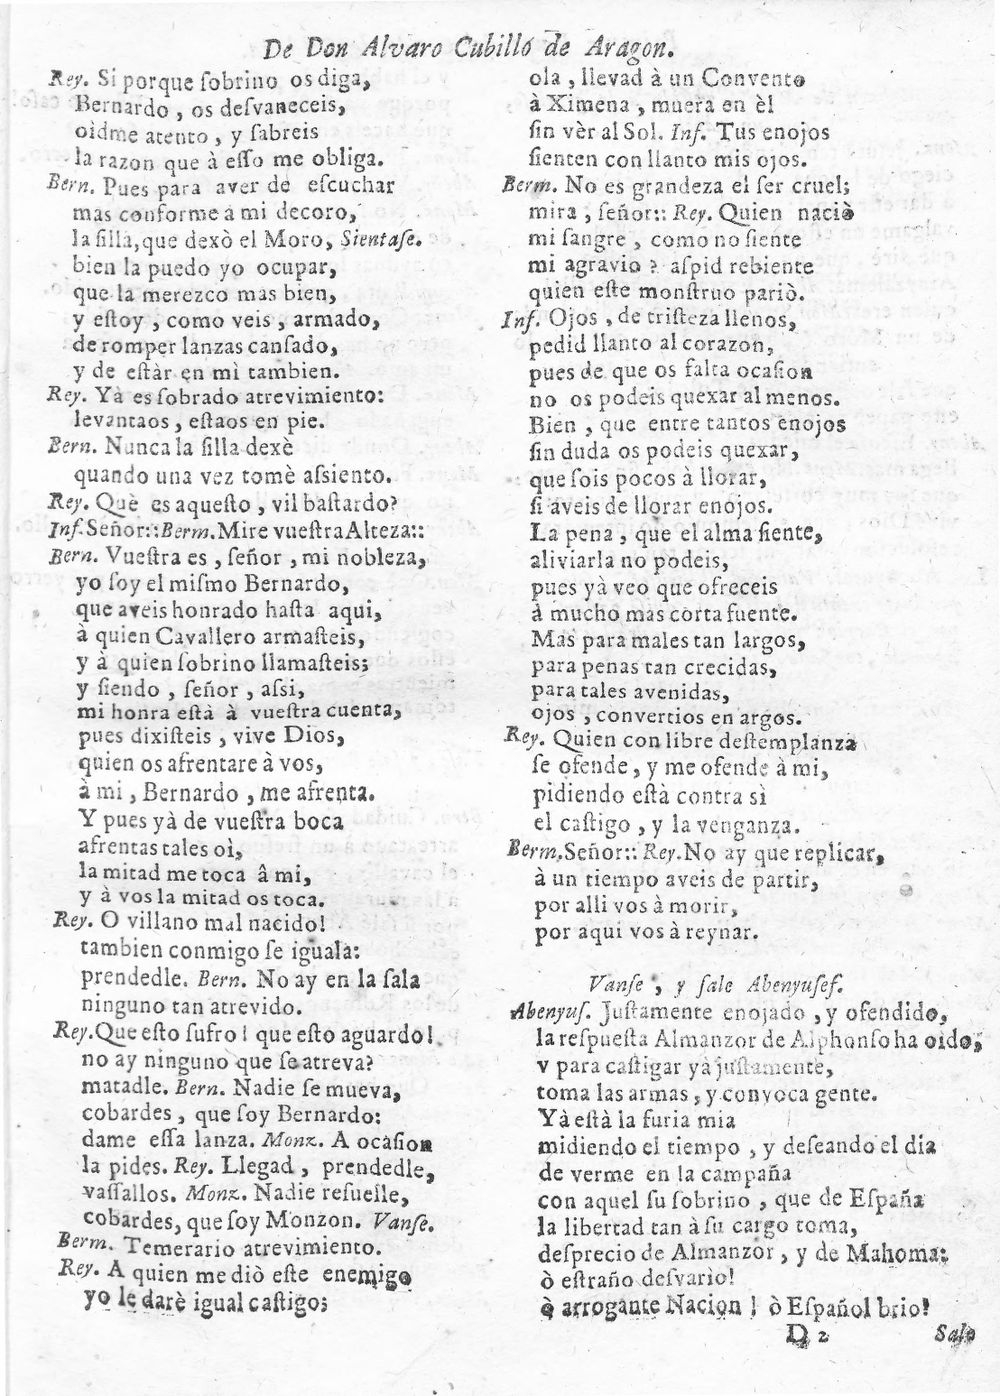 De Don Alvaro Cubillo de Aragon.
Rey. Si porque ſobrino os diga,
Bernardo, os deſvaneceis,
oìdme atento, y ſabreis
la razon que à eſſo me obliga.
Bern. Pues para aver de eſcuchar
mas conforme à mi decoro,
la ſilla, que dexò el Moro, Sientaſe.
bien la puedo yo ocupar,
que la merezco mas bien,
y eſtoy, como veis, armado,
de romper lanzas canſado,
y de eſtàr en mì tambien.
Rey. Yà es ſobrado atrevimiento:
levantaos, eſtaos en pie.
Bern. Nunca la ſilla dexè
quando una vez tomè aſsiento.
Rey. Què es aqueſto, vil baſtardo?
Inf. Señor:: Berm. Mire vueſtra Alteza::
Bern. Vueſtra es, ſeñor, mi nobleza,
yo ſoy el miſmo Bernardo,
que aveis honrado haſta aqui,
à quien Cavallero armaſteis,
y à quien ſobrino llamaſteis;
y ſiendo, ſeñor, aſsi,
mi honra eſtà à vueſtra cuenta,
pues dixiſteis, vive Dios,
quien os afrentare à vos,
à mi, Bernardo, me afrenta.
Y pues yà de vueſtra boca
afrentas tales oì,
la mitad me toca â mi,
y à vos la mitad os toca.
Rey. O villano mal nacido!
tambien conmigo ſe iguala:
prendedle. Bern. No ay en la ſala
ninguno tan atrevido.
Rey. Que eſto ſufro! que eſto aguardo!
no ay ninguno que ſe atreva?
matadle. Bern. Nadie ſe mueva,
cobardes, que ſoy Bernardo:
dame eſſa lanza. Monz. A ocaſion
la pides. Rey. Llegad, prendedle,
vaſſallos. Monz. Nadie reſuelle,
cobardes, que ſoy Monzon. Vanſe.
Berm. Temerario atrevimiento.
Rey. A quien me diò eſte enemigo
yo le darè igual caſtigo;
ola, llevad à un Convento
à Ximena, muera en èl
ſin vèr al Sol. Inf. Tus enojos
ſienten con llanto mis ojos.
Berm. No es grandeza el ſer cruel;
mira, ſeñor:: Rey. Quien naciò
mi ſangre, como no ſiente
mi agravio? aſpid rebiente
quien eſte monſtruo pariò.
Inf. Ojos, de triſteza llenos,
pedid llanto al corazon,
pues de que os falta ocaſion
no os podeis quexar al menos.
Bien, que entre tantos enojos
ſin duda os podeis quexar,
que ſois pocos à llorar,
ſi aveis de llorar enojos.
La pena, que el alma ſiente,
aliviarla no podeis,
pues yà veo que ofreceis
à mucho mas corta fuente.
Mas para males tan largos,
para penas tan crecidas,
para tales avenidas,
ojos, convertios en argos.
Rey. Quien con libre deſtemplanza
ſe ofende, y me ofende à mi,
pidiendo eſtà contra sì
el caſtigo, y la venganza.
Berm. Señor:: Rey. No ay que replicar,
à un tiempo aveis de partir,
por alli vos à morir,
por aqui vos à reynar.
Vanſe, y ſale Abenyuſef.
Abenyuſ. Juſtamente enojado, y ofendido,
la reſpueſta Almanzor de Alphonſo ha oido,
y para caſtigar yà juſtamente,
toma las armas, y convoca gente.
Yà eſtà la furia mia
midiendo el tiempo, y deſeando el dia
de verme en la campaña
con aquel ſu ſobrino, que de Eſpaña
la libertad tan à ſu cargo toma,
deſprecio de Almanzor, y de Mahoma:
ò eſtraño deſvario!
ò arrogante Nacion! ò Eſpañol brio!
D 2 Sale